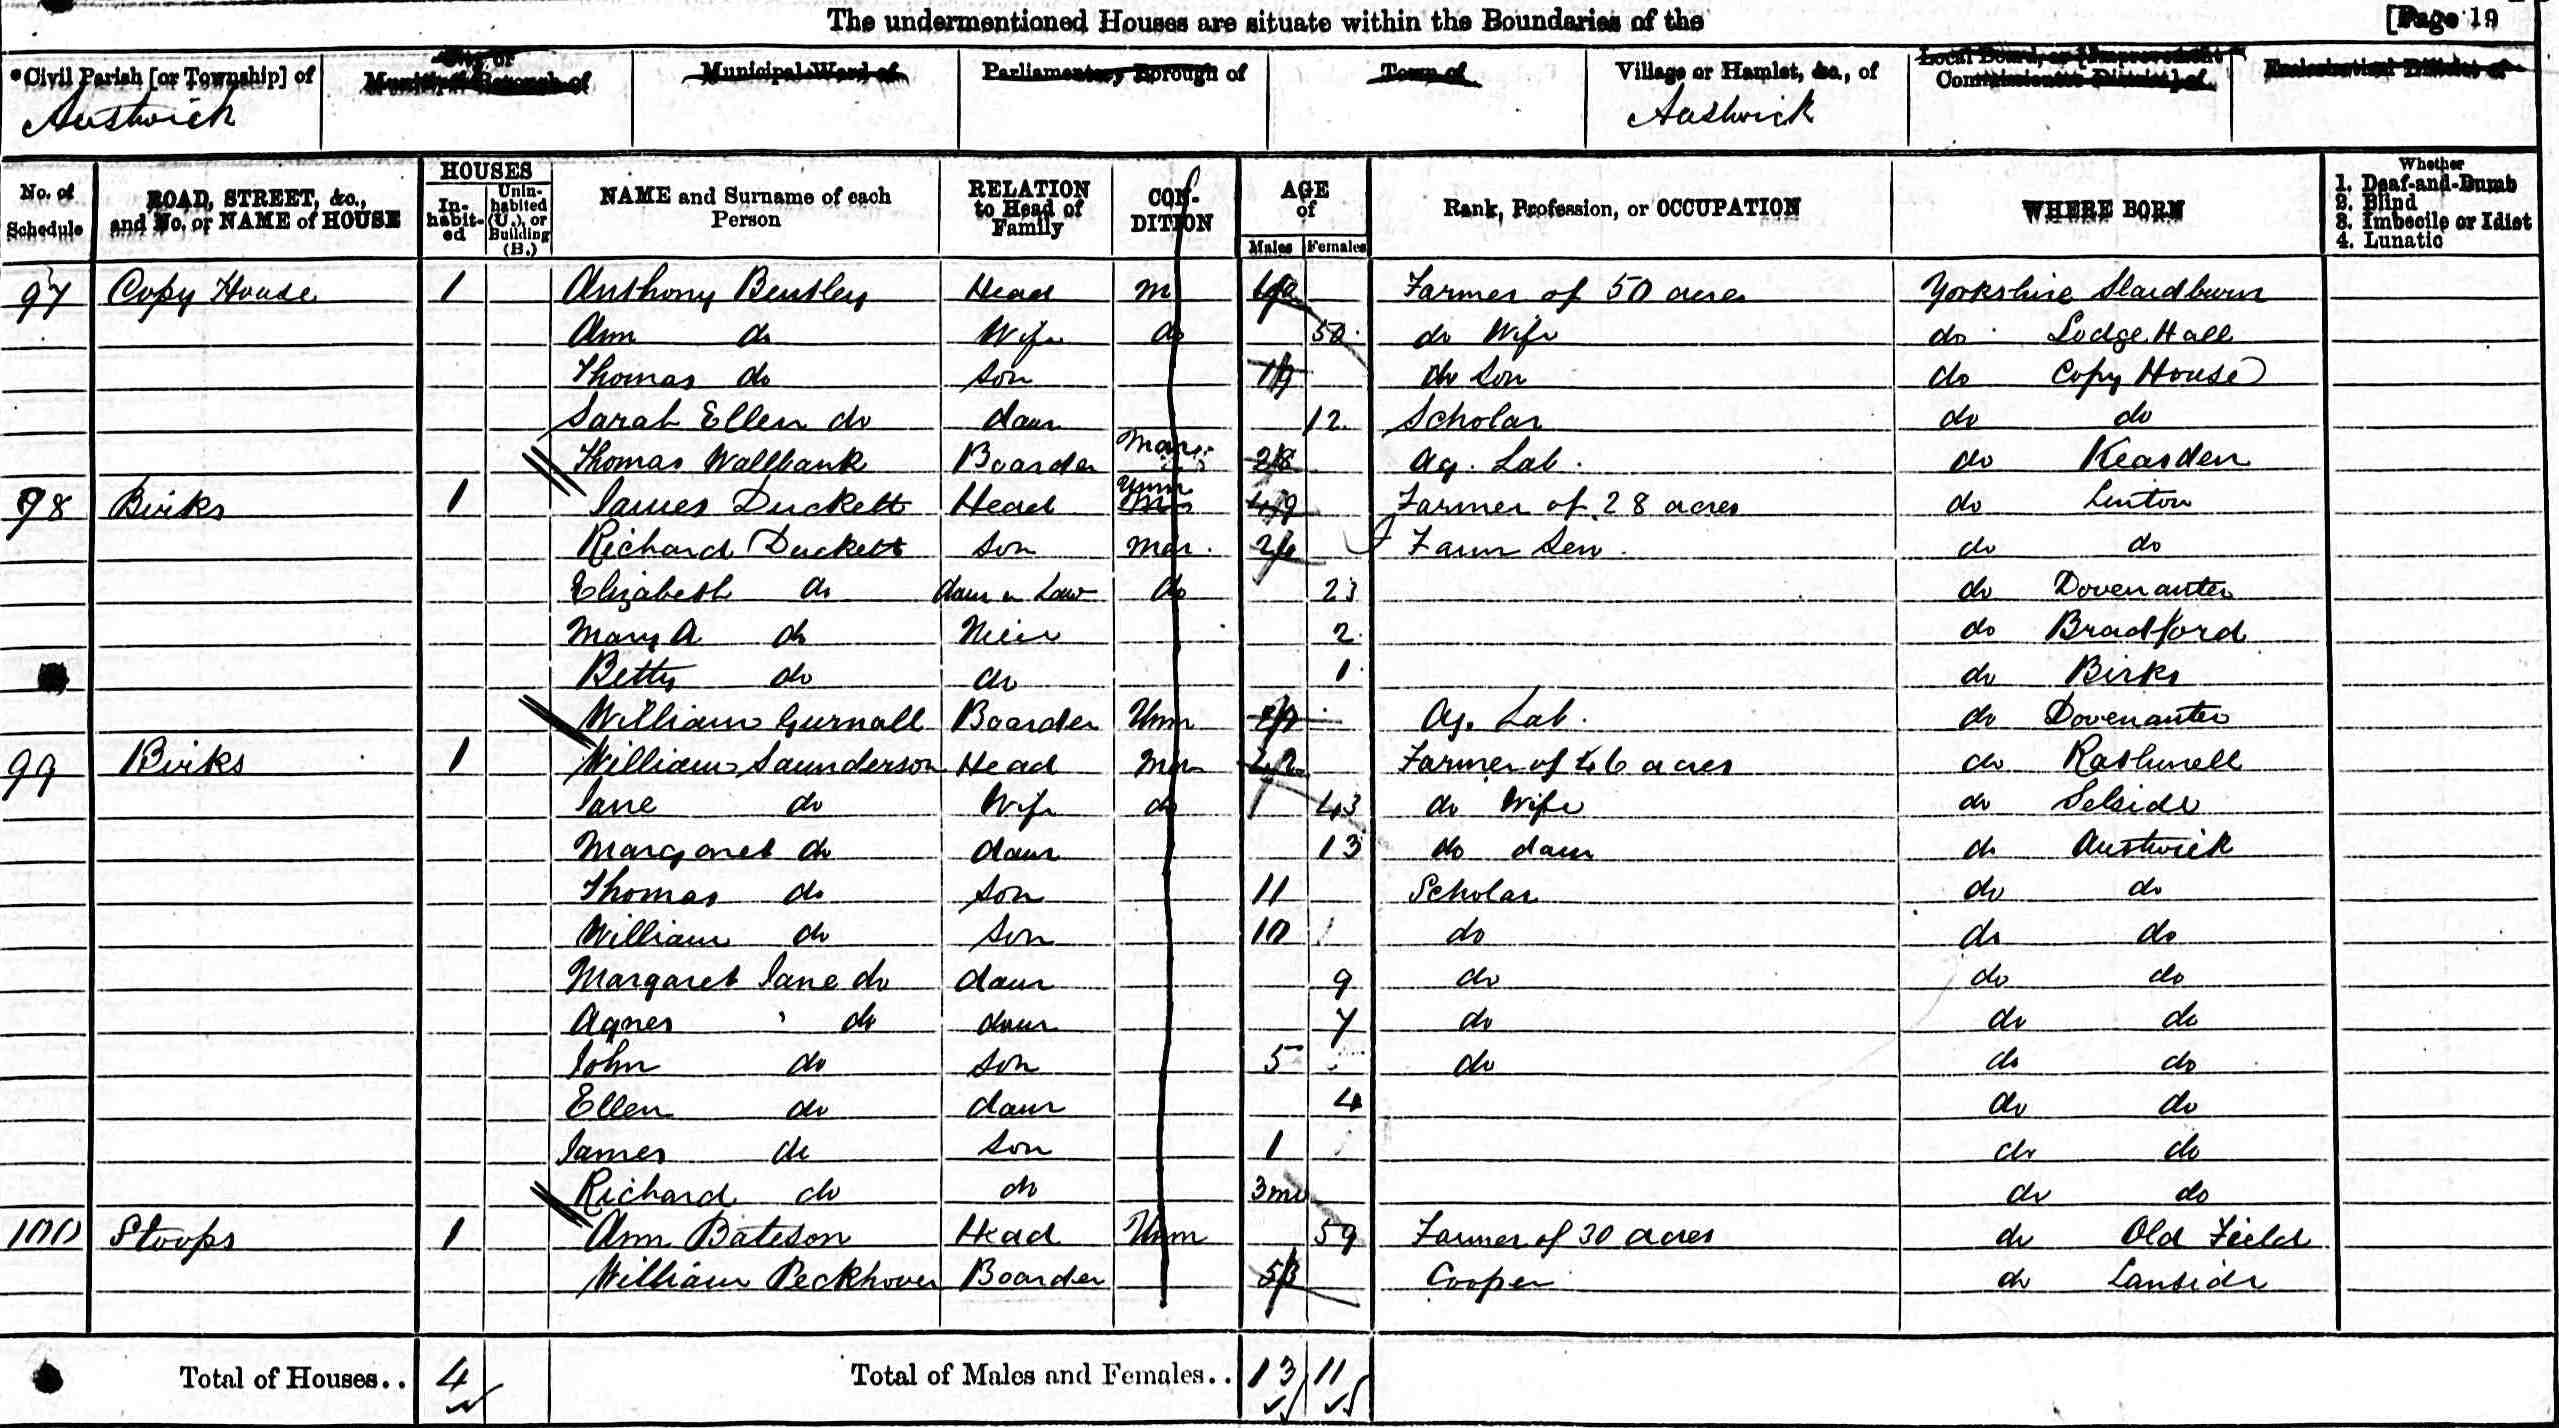 The undermentioned Houses are situate within the Boundaries of the [Page 19
Civil Parish [or Township] of City or Municipal Borough of Municipal Ward of Parliamentary Borough of Town of Village or Hamlet, &c., of Local Board, or [Improvement Commissioners District] of Ecclesiastical District of
Austwick Austwick
No. of Schedule ROAD, STREET, &c., and No. or NAME of HOUSE HOUSES Inhabited Uninhabited (U.), or Building (B.) NAME and Surname of each Person RELATION to Head of Family CONDITION AGE of Males Females Rank, Profession, or OCCUPATION WHERE BORN Whether 1. Deaf-and-Dumb 2. Blind 3. Imbecile or Idiot 4. Lunatic
97 Copy House 1 Anthony Bentley Head m Farmer of 50 acres Yorkshire Slaidburn
Ann do Wife do 50 do Wife do Lodge Hall
Thomas do son 19 do son do Copy House
Sarah Ellen do daur 12 Scholar do do
Thomas Wallbank Boarder Mar 28 Ag. Lab. do Keasden
98 Birks 1 James Duckett Head Unm 49 Farmer of 28 acres do Linton
Richard Duckett son Mar. Farm Serv do do
Elizabeth do daur n Law do 23 do Dovenanter
Mary A do Niece 2 do Bradford
Betty do do 1 do Birks
William Gurnall Boarder Unm Ag. Lab. do Dovenanter
99 Birks 1 William Saunderson Head Mar 42 Farmer of 46 acres do Rathmell
Jane do Wife do 43 do Wife do Selside
Margaret do daur 13 do daur do Austwick
Thomas do son 11 Scholar do do
William do son 10 do do do
Margaret Jane do daur 9 do do do
Agnes do daur 7 do do do
John do son 5 do do do
Ellen do daur 4 do do
James do son 1 do do
Richard do do 3mo do do
100 Stoops 1 Ann Bateson Head Unm 59 Farmer of 30 acres do Old Field
William Peckhover Boarder 53 Cooper do
Total of Houses.. 4 Total of Males and Females.. 13 11